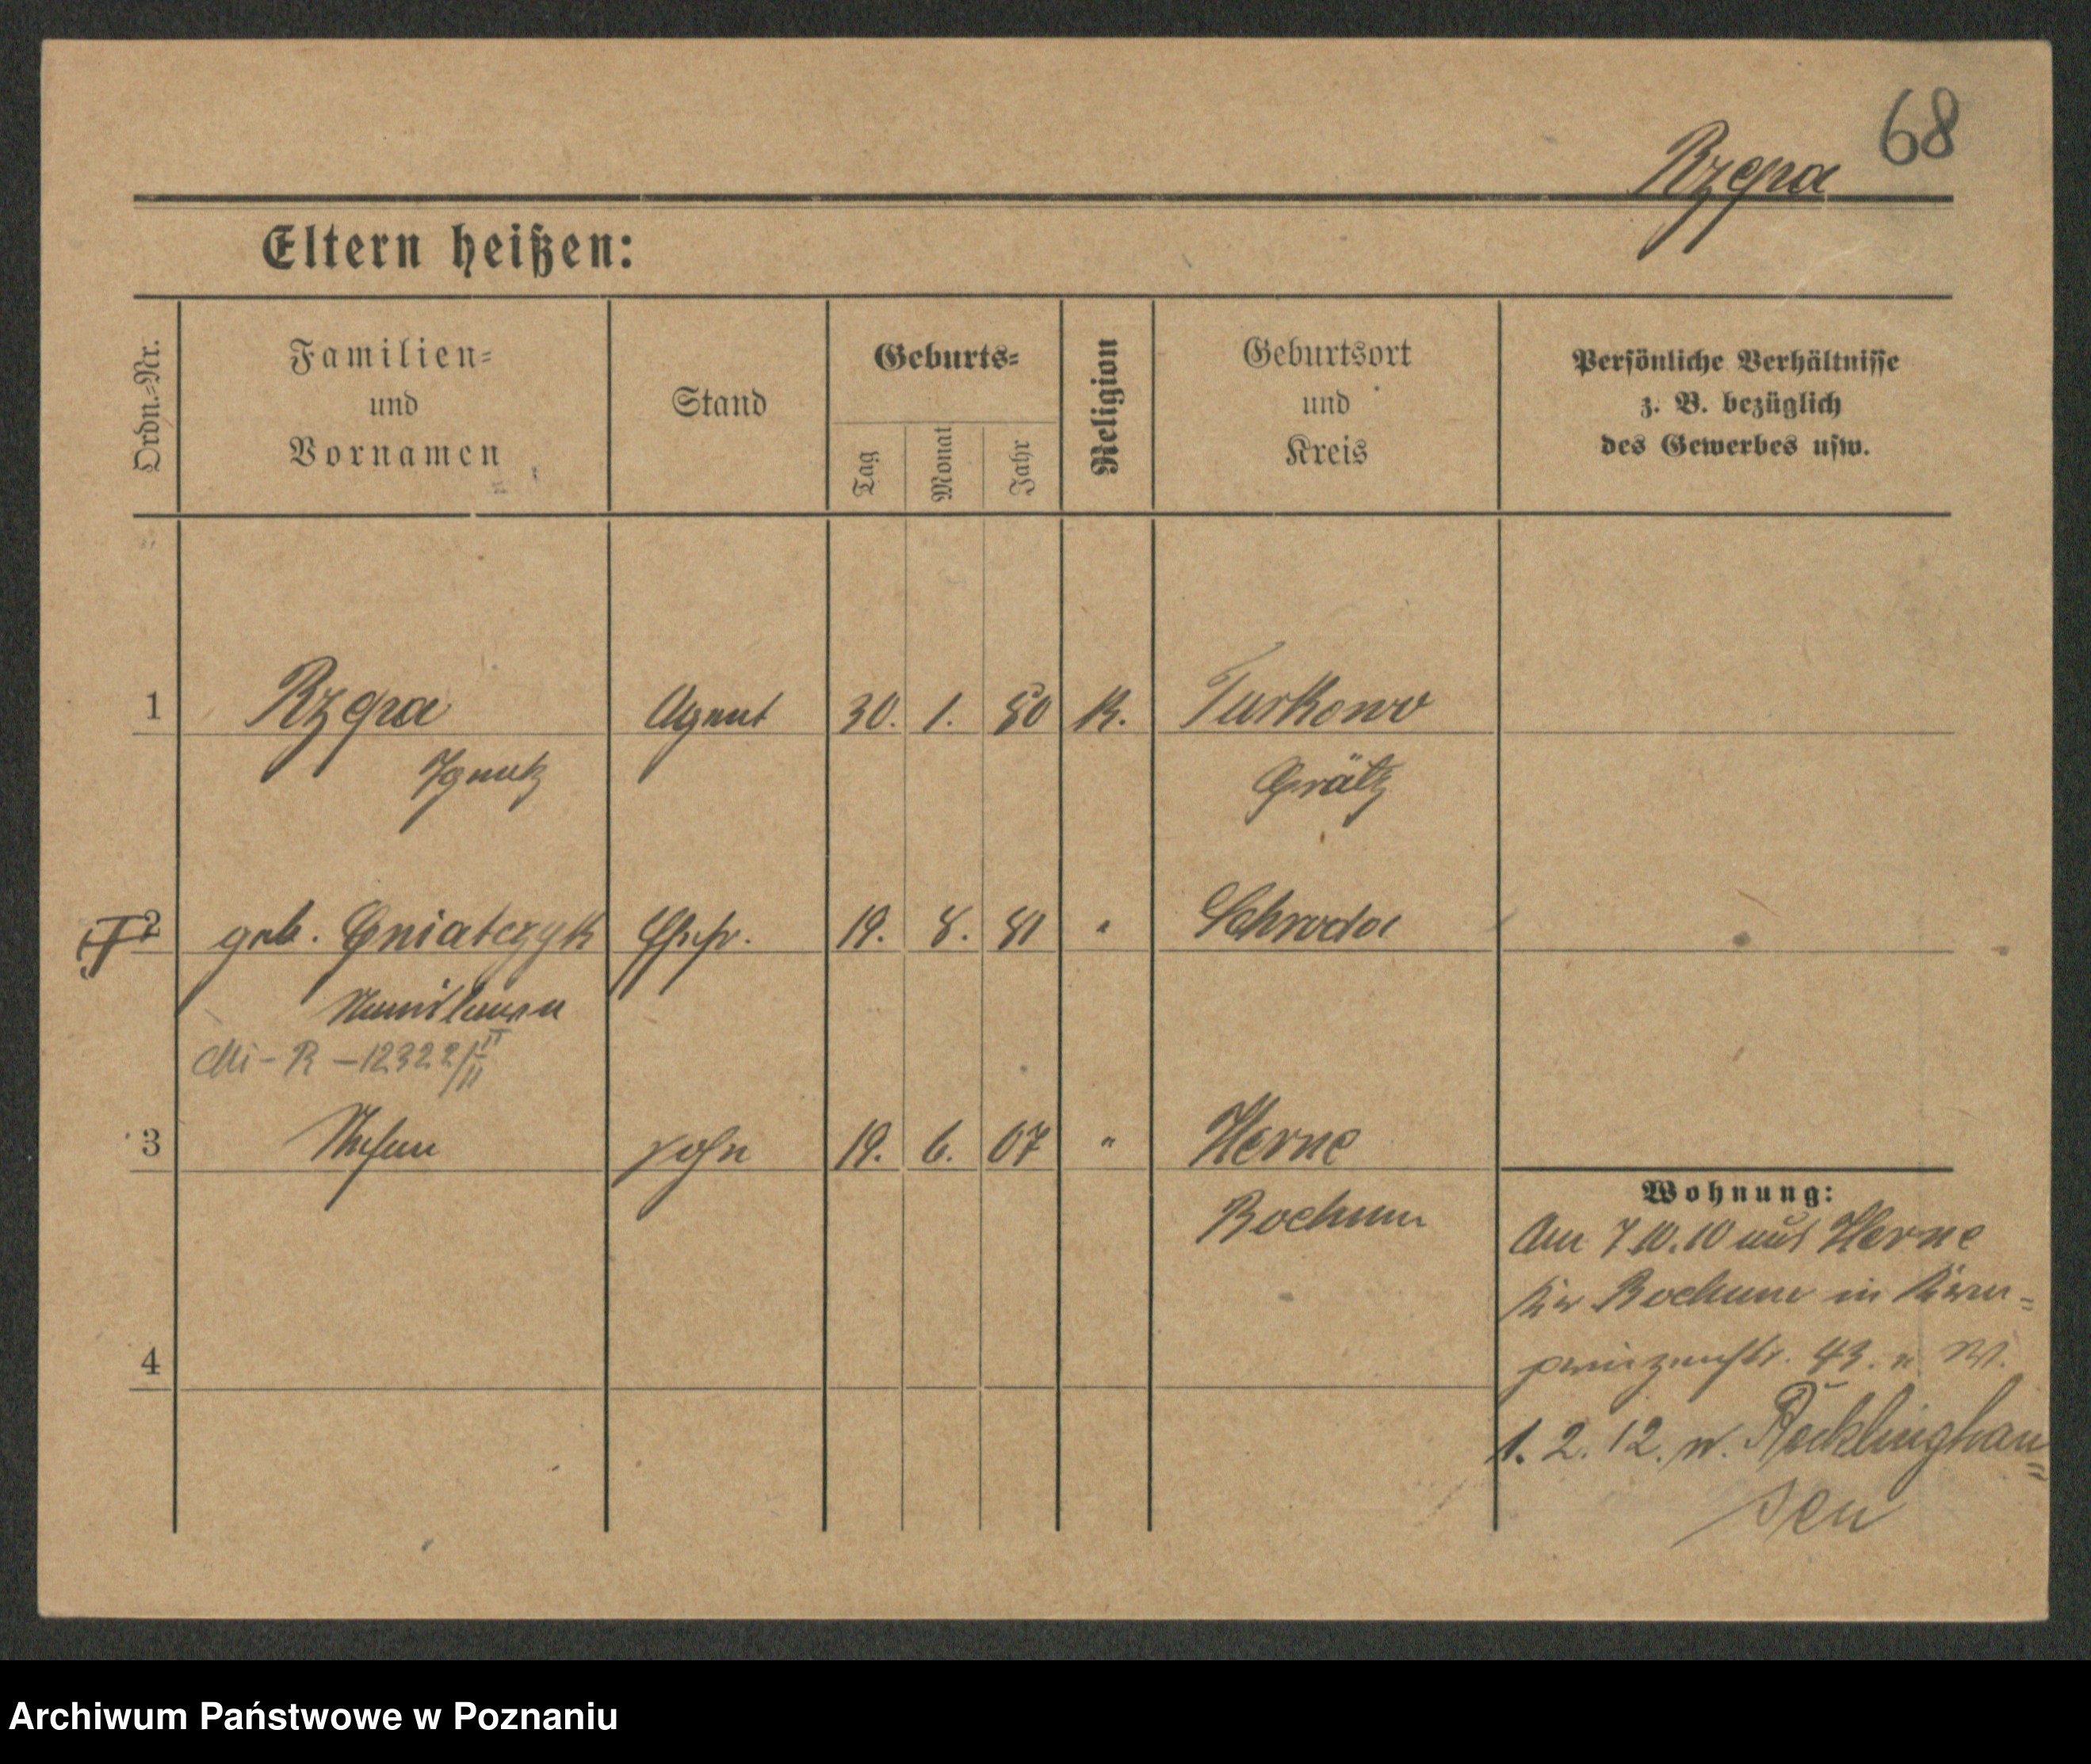 68
Rzepa
Eltern heißen:
Ordn.-Nr.
Familien-
und
Vornamen
Stand
Geburts-
Tag
Monat
Jahr
Religion
Geburtsort
und
Kreis
Persönliche Verhältnisse
z. B. bezüglich
des Gewerbes usw.
1 Rzepa Agent 30. 1. 80 K. Turkowo
Ignatz Grätz
2 geb. Gniatczyk Ehefr. 19. 8. 81 " Schroda
Stanislawa
Mi-R-12322/II
3 Stefan Sohn 19. 6. 07 " Herne
Bochum
4
Wohnung:
Am 7.10.10 aus Herne
Kr Bochum in Kron=
prinzenstr. 43. n W.
1. 2. 12. n. Recklinghau=
sen
Archiwum Państwowe w Poznaniu